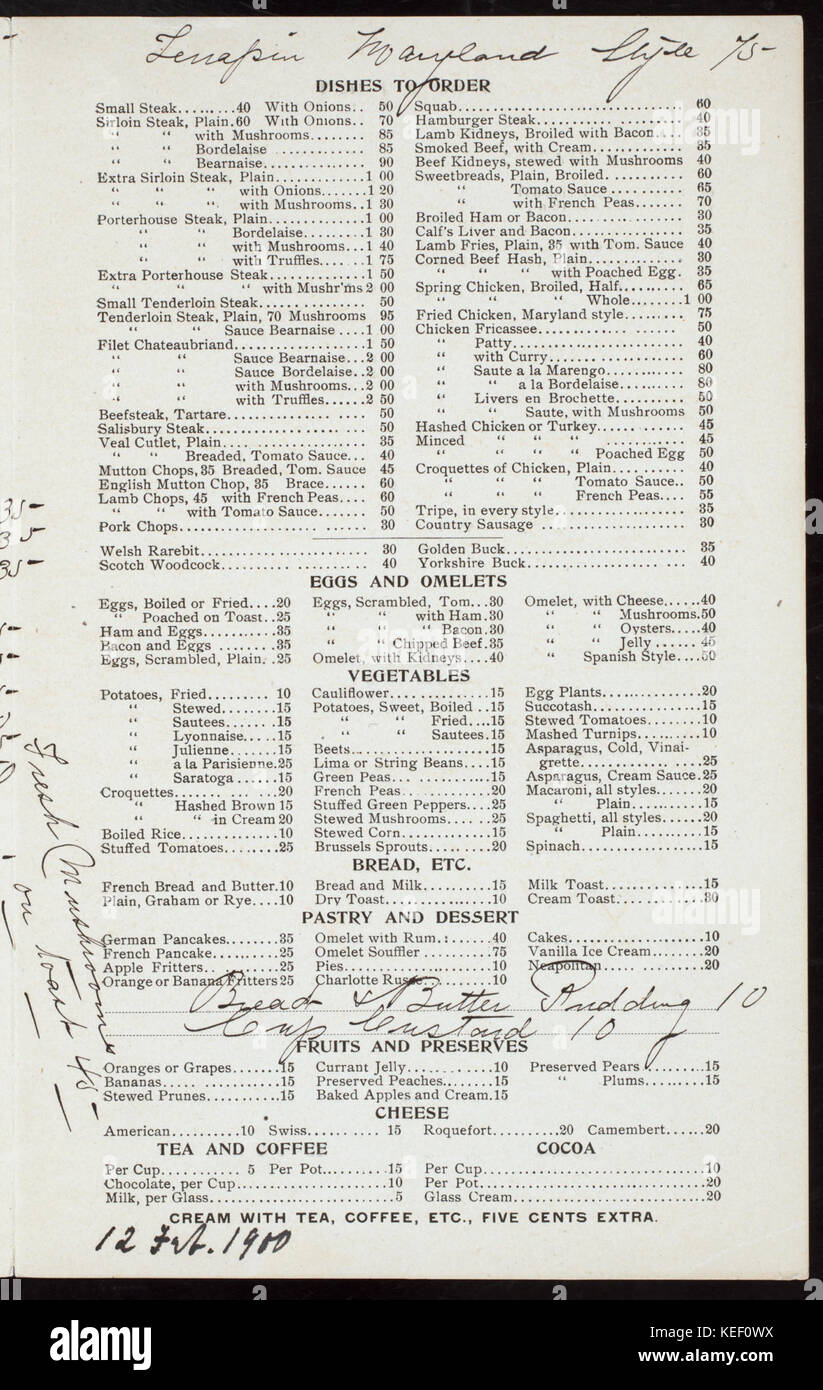 Terrapin Maryland Style 75-
DISHES TO ORDER
Small Steak.........40 With Onions.. 50
Sirloin Steak, Plain.60 With Onions.. 70
" " with Mushrooms........ 85
" " Bordelaise ............. 85
" " Bearnaise............... 90
Extra Sirloin Steak, Plain.............1 00
" " " with Onions.......1 20
" " " with Mushrooms..1 30
Porterhouse Steak, Plain..............1 00
" " Bordelaise.........1 30
" " with Mushrooms...1 40
" " with Truffles.......1 75
Extra Porterhouse Steak..............1 50
" " " with Mushr'ms 2 00
Small Tenderloin Steak............... 50
Tenderloin Steak, Plain, 70 Mushrooms 95
" " Sauce Bearnaise ....1 00
Filet Chateaubriand...................1 50
" " Sauce Bearnaise...2 00
" " Sauce Bordelaise..2 00
" " with Mushrooms...2 00
" " with Truffles......2 50
Beefsteak, Tartare.................... 50
Salisbury Steak....................... 50
Veal Cutlet, Plain.................... 35
" " Breaded, Tomato Sauce... 40
Mutton Chops, 35 Breaded, Tom. Sauce 45
English Mutton Chop, 35 Brace...... 60
Lamb Chops, 45 with French Peas.... 60
" " with Tomato Sauce....... 50
Pork Chops........................... 30
Squab................................ 60
Hamburger Steak..................... 40
Lamb Kidneys, Broiled with Bacon.... 35
Smoked Beef, with Cream............. 35
Beef Kidneys, stewed with Mushrooms 40
Sweetbreads, Plain, Broiled........... 60
" Tomato Sauce .......... 65
" with French Peas....... 70
Broiled Ham or Bacon................. 30
Calf's Liver and Bacon................ 35
Lamb Fries, Plain, 35 with Tom. Sauce 40
Corned Beef Hash, Plain.............. 30
" " " with Poached Egg. 35
Spring Chicken, Broiled, Half......... 65
" " " Whole........1 00
Fried Chicken, Maryland style......... 75
Chicken Fricassee..................... 50
" Patty........................ 40
" with Curry................... 60
" Saute a la Marengo........... 80
" " a la Bordelaise......... 80
" Livers en Brochette.......... 50
" " Saute, with Mushrooms 50
Hashed Chicken or Turkey............. 45
Minced " " " ........... 45
" " " " Poached Egg 50
Croquettes of Chicken, Plain.......... 40
" " " Tomato Sauce.. 50
" " " French Peas.... 55
Tripe, in every style.................. 35
Country Sausage ..................... 30
Welsh Rarebit........................ 30
Scotch Woodcock..................... 40
Golden Buck......................... 35
Yorkshire Buck...................... 40
EGGS AND OMELETS
Eggs, Boiled or Fried....20
" Poached on Toast..25
Ham and Eggs...........35
Bacon and Eggs ........35
Eggs, Scrambled, Plain..25
Eggs, Scrambled, Tom...30
" " with Ham.30
" " " Bacon.30
" " Chipped Beef.35
Omelet, with Kidneys....40
Omelet, with Cheese......40
" " Mushrooms.50
" " Oysters....40
" " Jelly ...... 45
" Spanish Style....50
VEGETABLES
Potatoes, Fried......... 10
" Stewed........15
" Sautees.......15
" Lyonnaise.....15
" Julienne.......15
" a la Parisienne.25
" Saratoga ......15
Croquettes...............20
" Hashed Brown 15
" " in Cream 20
Boiled Rice..............10
Stuffed Tomatoes........25
Cauliflower..............15
Potatoes, Sweet, Boiled ..15
" " Fried....15
" " Sautees.15
Beets....................15
Lima or String Beans....15
Green Peas..............15
French Peas.............20
Stuffed Green Peppers....25
Stewed Mushrooms.......25
Stewed Corn.............15
Brussels Sprouts.........20
Egg Plants...............20
Succotash................15
Stewed Tomatoes........10
Mashed Turnips..........10
Asparagus, Cold, Vinai-
grette.................25
Asparagus, Cream Sauce.25
Macaroni, all styles.......20
" Plain..............15
Spaghetti, all styles......20
" Plain.............15
Spinach..................15
BREAD, ETC.
French Bread and Butter.10
Plain, Graham or Rye....10
Bread and Milk..........15
Dry Toast...............10
Milk Toast..............15
Cream Toast.............30
PASTRY AND DESSERT
German Pancakes........35
French Pancake..........25
Apple Fritters............25
Orange or Banana Fritters 25
Omelet with Rum.:......40
Omelet Souffler ..........75
Pies......................10
Charlotte Russe..........10
Cakes....................10
Vanilla Ice Cream........20
Neapolitan ..............20
Bread & Butter Pudding 10
Cup Custard 10
FRUITS AND PRESERVES
Oranges or Grapes.......15
Bananas.................15
Stewed Prunes...........15
Currant Jelly.............10
Preserved Peaches........15
Baked Apples and Cream.15
Preserved Pears .........15
" Plums.........15
CHEESE
American..........10 Swiss.......... 15 Roquefort..........20 Camembert......20
TEA AND COFFEE
Per Cup........... 5 Per Pot..........15
Chocolate, per Cup......................10
Milk, per Glass.......................... 5
COCOA
Per Cup.................................10
Per Pot.................................20
Glass Cream............................20
CREAM WITH TEA, COFFEE, ETC., FIVE CENTS EXTRA.
12 Feb. 1900
Fresh Mushrooms
on Toast 45-
35-
35-
35-
alamy
Image ID: KEF0WX
www.alamy.com